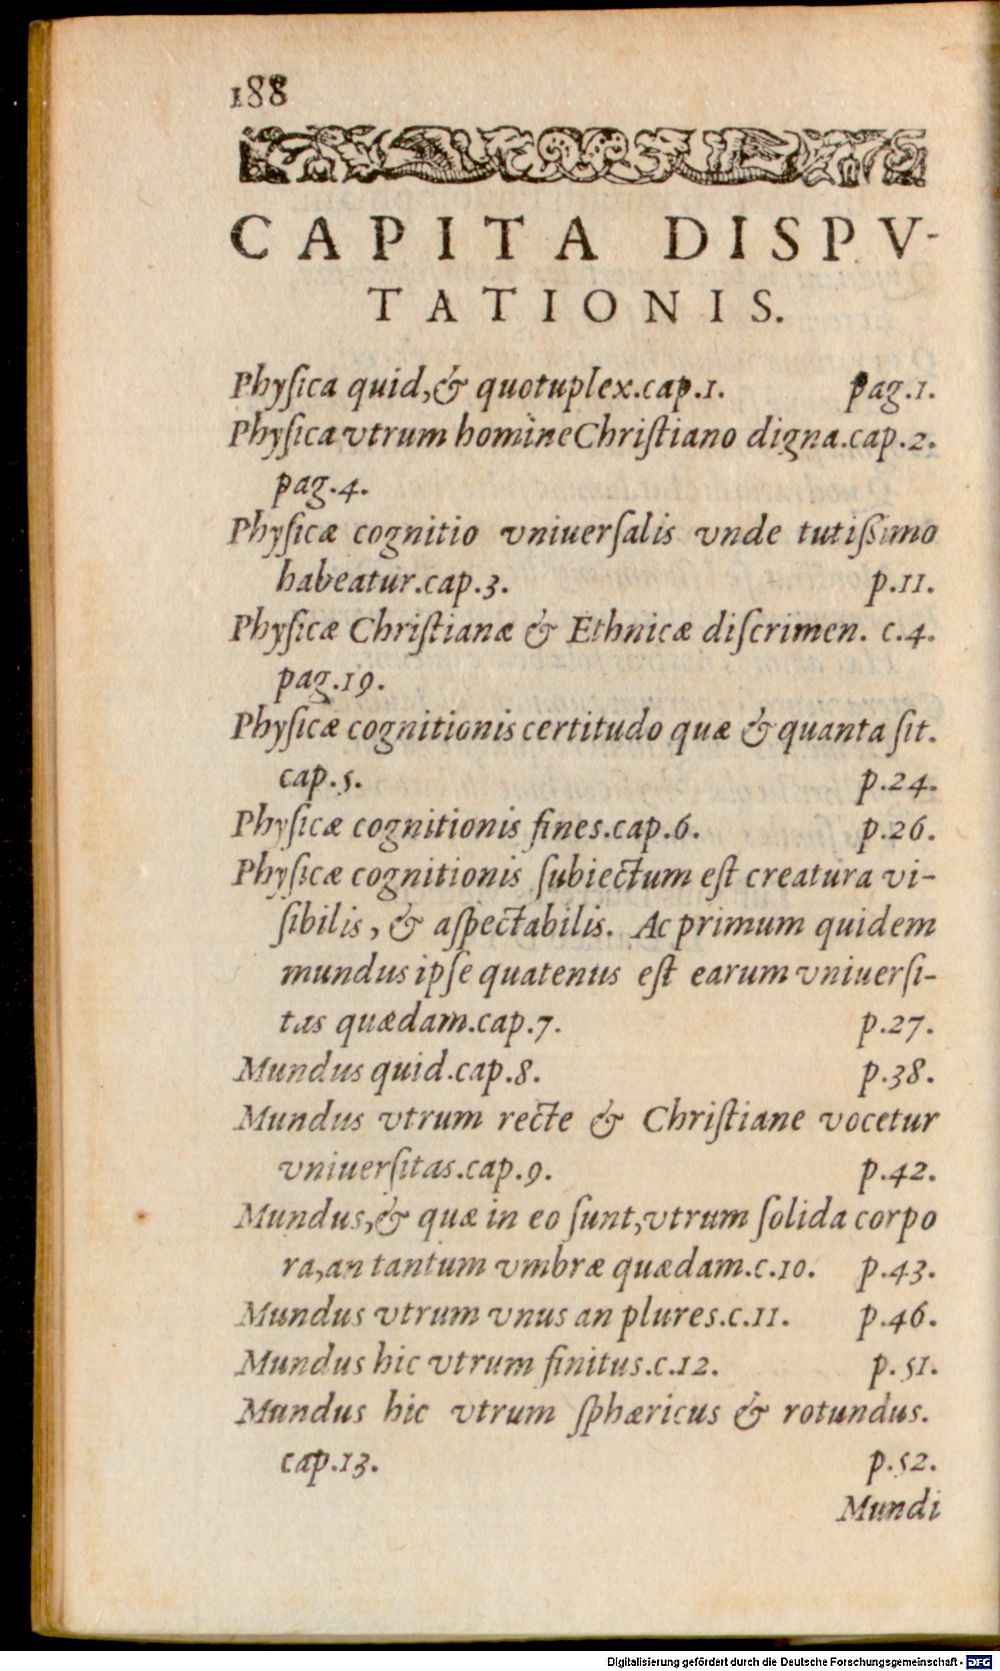 188
CAPITA DISPV-
TATIONIS.
Phyſica quid,& quotuplex.cap.1. pag.1.
Phyſica vtrum homine Chriſtiano digna.cap.2.
pag.4.
Phyſicæ cognitio vniuerſalis vnde tutiſſimo
habeatur.cap.3. p.11.
Phyſicæ Chriſtianæ & Ethnicæ diſcrimen. c.4.
pag.19.
Phyſicæ cognitionis certitudo quæ & quanta ſit.
cap.5. p.24.
Phyſicæ cognitionis fines.cap.6. p.26.
Phyſicæ cognitionis ſubiectum eſt creatura vi-
ſibilis, & aſpectabilis. Ac primum quidem
mundus ipſe quatenus eſt earum vniuerſi-
tas quædam.cap.7. p.27.
Mundus quid.cap.8. p.38.
Mundus vtrum recte & Chriſtiane vocetur
vniuerſitas.cap.9. p.42.
Mundus,& quæ in eo ſunt,vtrum ſolida corpo
ra,an tantum vmbræ quædam.c.10. p.43.
Mundus vtrum vnus an plures.c.11. p.46.
Mundus hic vtrum finitus.c.12. p.51.
Mundus hic vtrum ſphæricus & rotundus.
cap.13. p.52.
Mundi
Digitalisierung gefördert durch die Deutsche Forschungsgemeinschaft - DFG